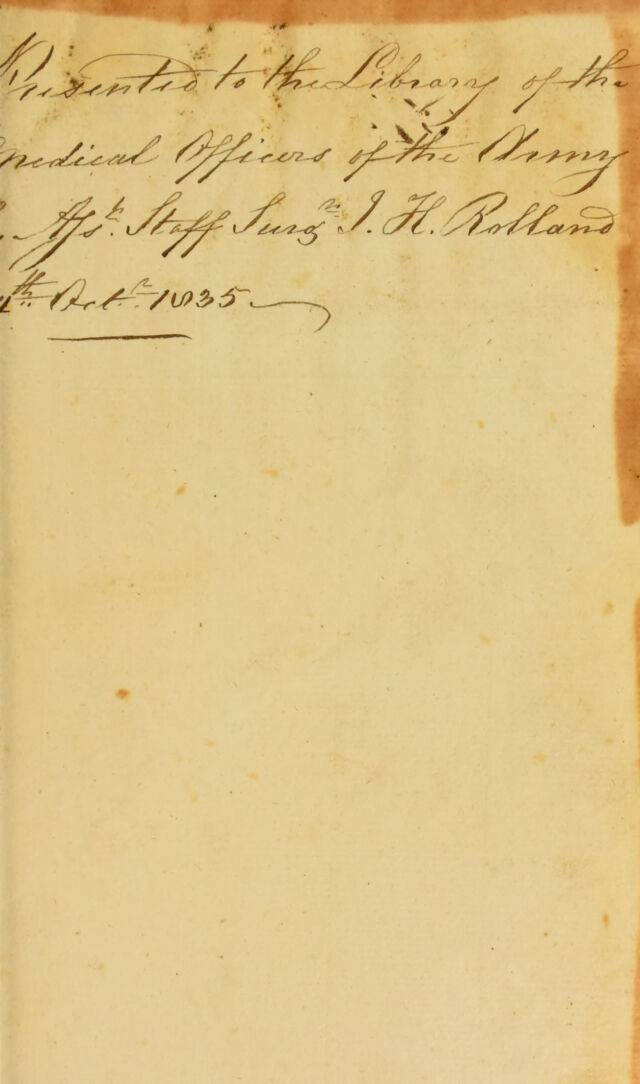 Presented to the Library of the
Medical Officers of the Army
Asst. Staff Surgn. J. H. Rolland
th Octr. 1835